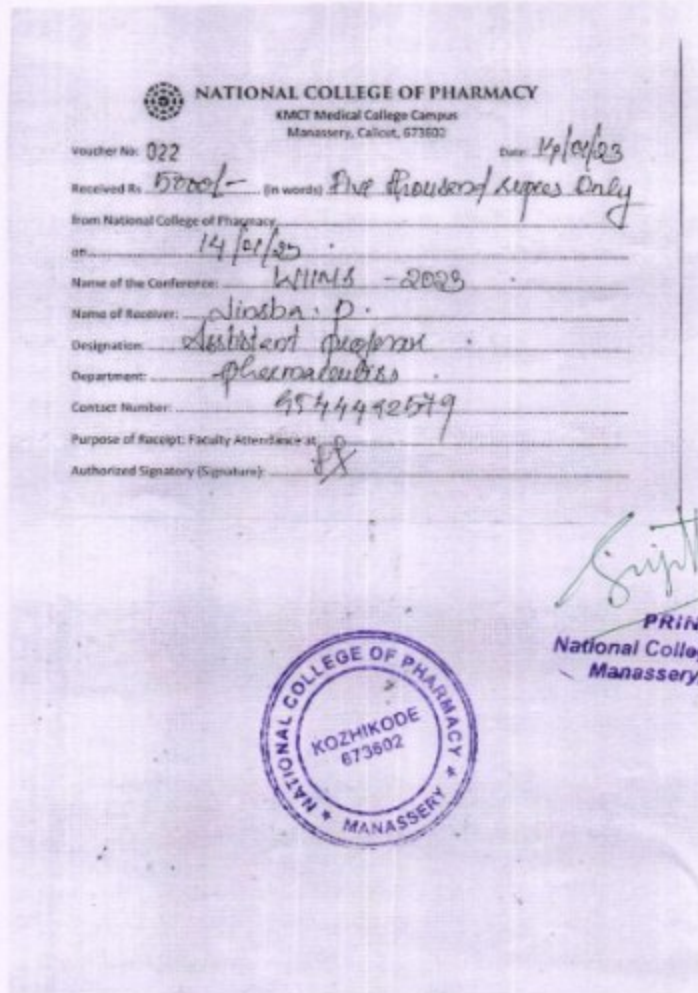 NATIONAL COLLEGE OF PHARMACY
KMCT Medical College Campus
Manassery, Calicut, 673602
Voucher No: 022 Date: 14/01/23
Received Rs. 5000/- (in words) Five thousand rupees Only
from National College of Pharmacy
on 14/01/23
Name of the Conference: - 2023
Name of Receiver: Jinsha. P.
Designation: Assistant professor
Department: Pharmaceutics
Contact Number:
Purpose of Receipt: Faculty Attendance at
Authorized Signatory (Signature):
PRIN
National Colle
Manassery
NATIONAL COLLEGE OF PHARMACY
KOZHIKODE
673602
* MANASSERY *